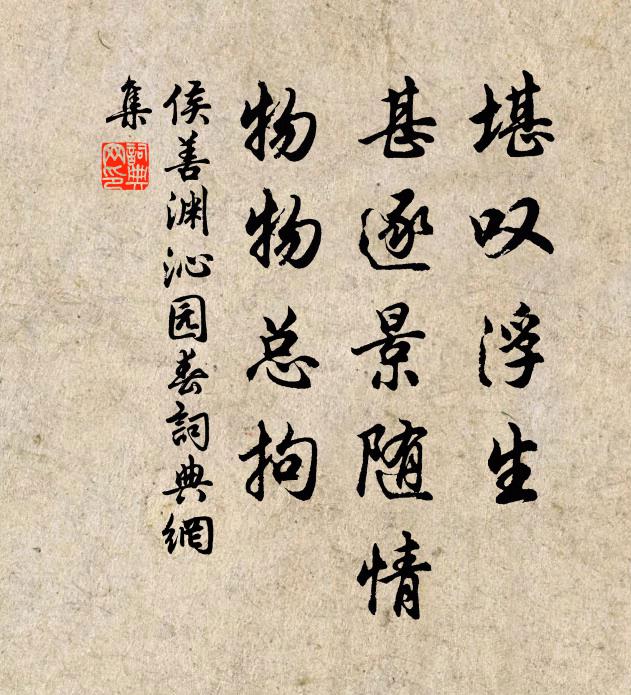 堪叹浮生
甚逐景随情
物物总拘
侯善渊沁园春詞典網
集
詞典
网印